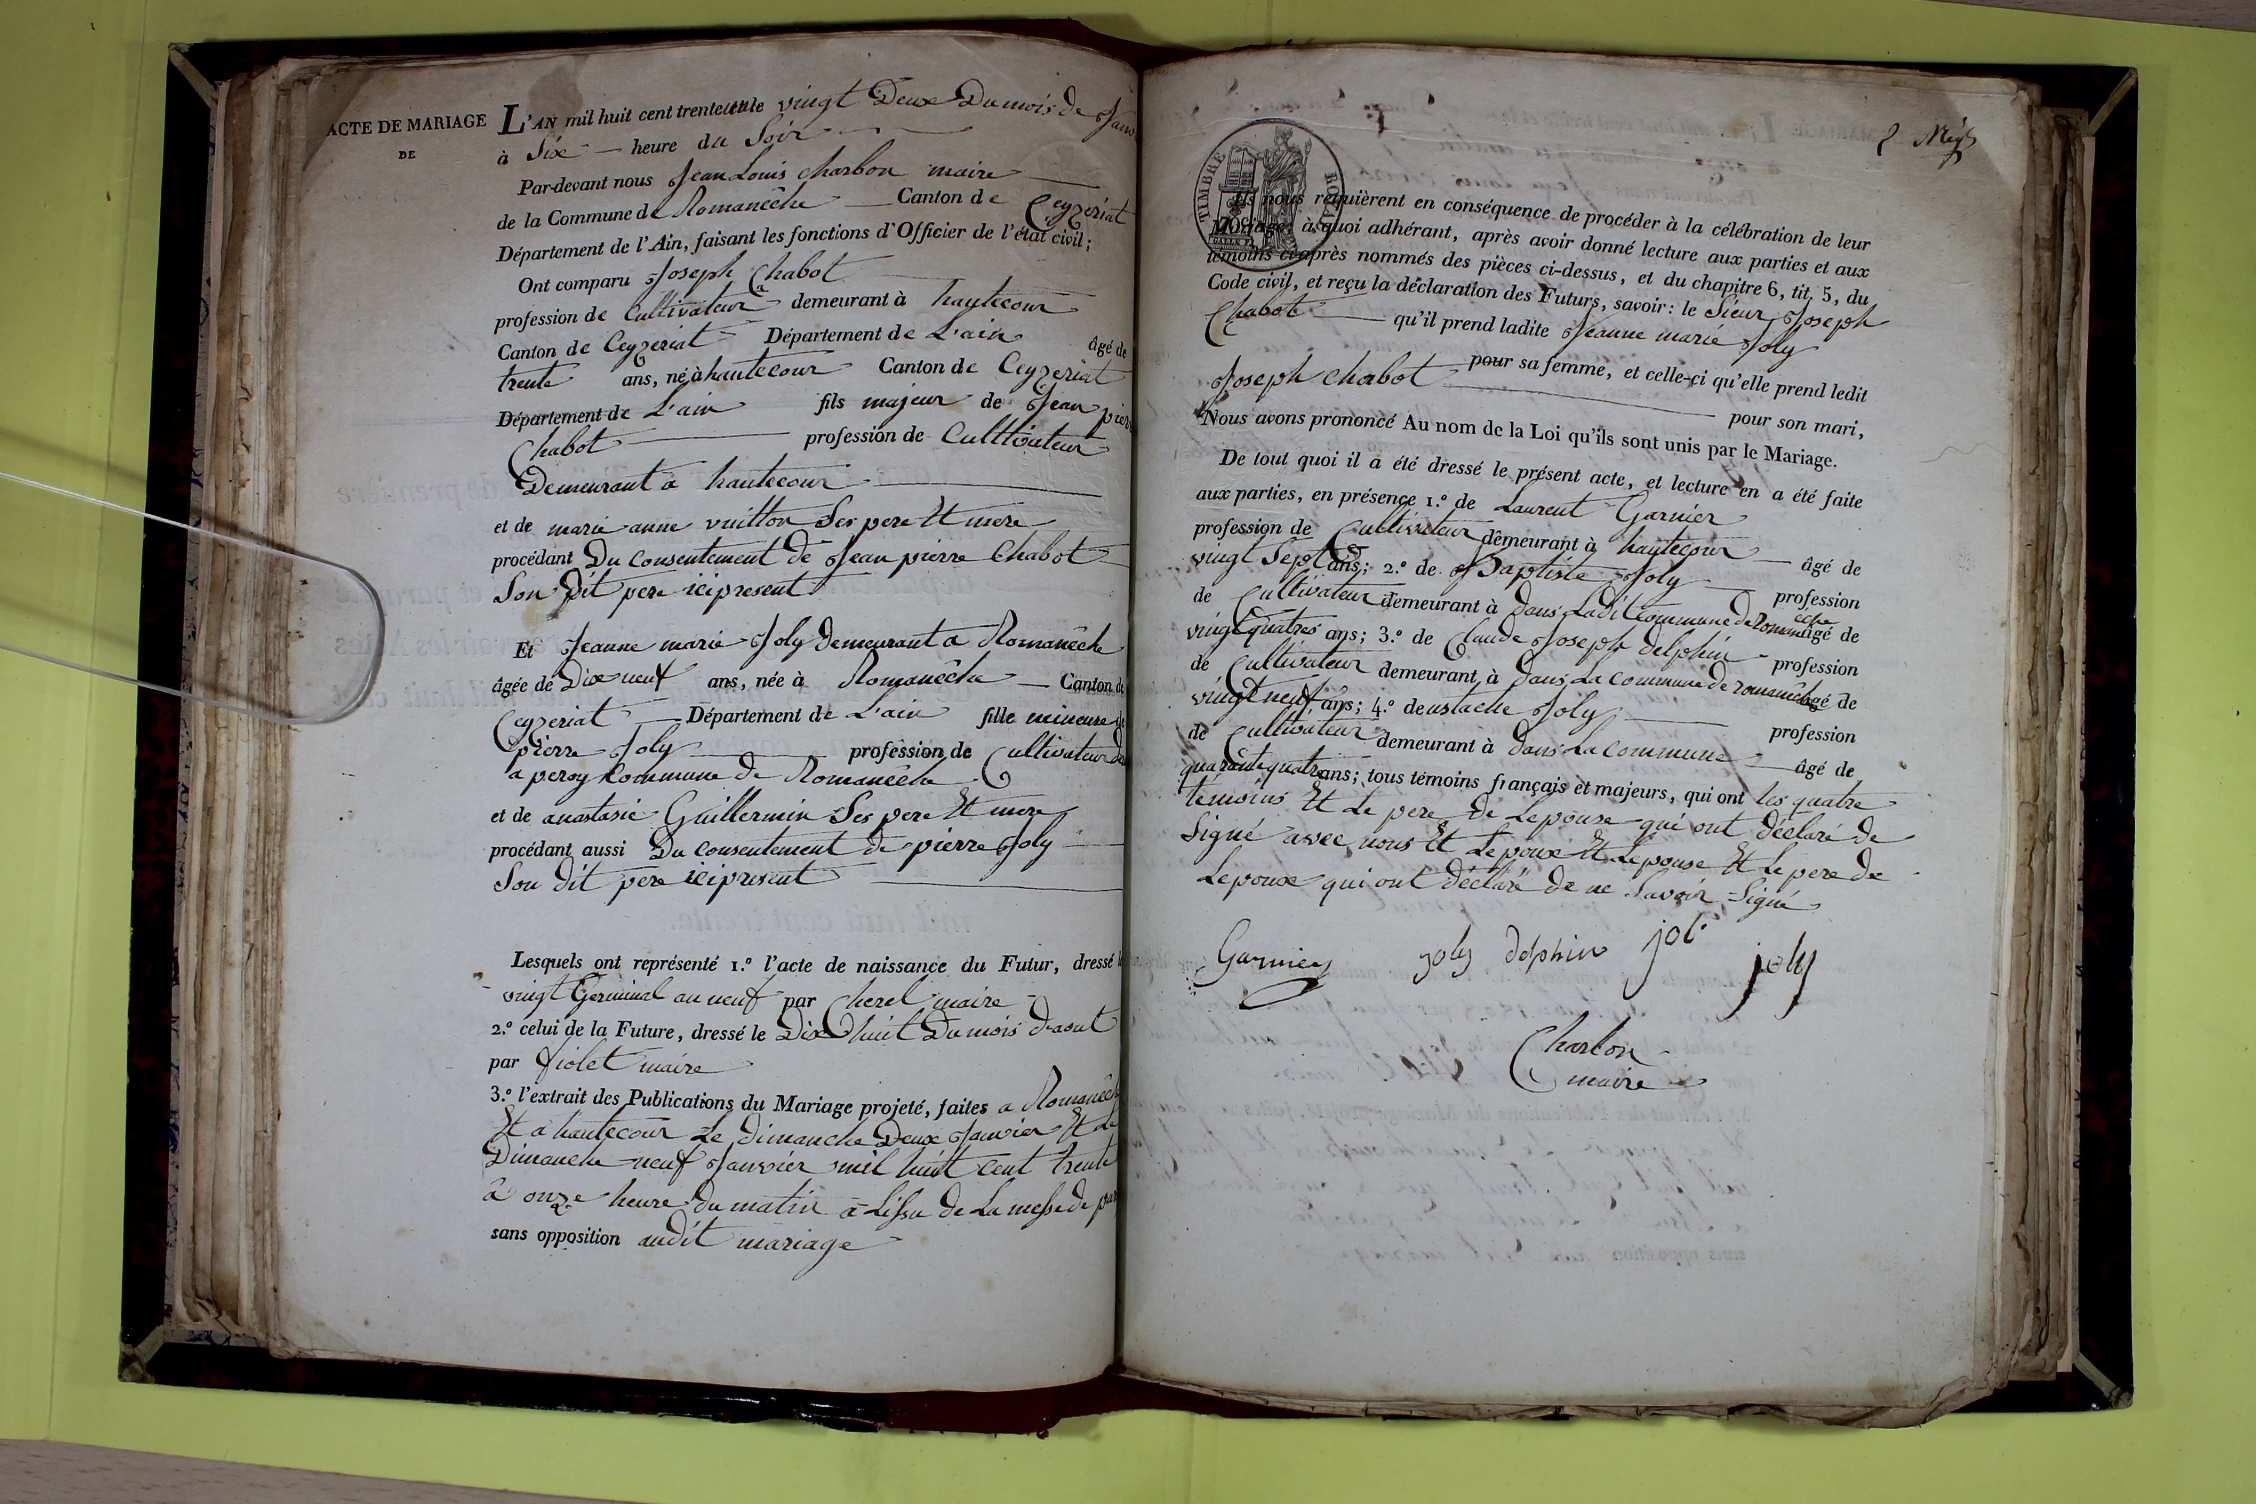 ACTE DE MARIAGE
DE
L'AN mil huit cent trente un le vingt Deux Du mois de Janv
à Six heure du Soir
Par-devant nous Jean Louis Charbon maire
de la Commune de Romanêche Canton de Ceyzeriat
Département de l'Ain, faisant les fonctions d'Officier de l'état civil;
Ont comparu Joseph Chabot
profession de Cultivateur demeurant à hautecour
Canton de Ceyzeriat Département de L'ain âgé de
trente ans, né à hautecour Canton de Ceyzeriat
Département de L'ain fils majeur de Jean pierr
Chabot profession de Culttivateur
Demeurant a hautecour
et de marie anne vuitton Ses pere Et mere
procédant Du Consentement de Jean pierre Chabot
Son Dit pere ici present
Et Jeanne marie Joly Demeurant a Romanêche
âgée de Dix neuf ans, née à Romanêche Canton de
Ceyzeriat Département de L'ain fille mineure de
pierre Joly profession de Cultivateur
a Commune de Romanêche
et de anastasie Guillermin Ses pere Et mere
procédant aussi Du Consentement de pierre Joly
Son dit pere ici present
Lesquels ont représenté 1.º l'acte de naissance du Futur, dressé le
vingt Germinal an neuf par Cherel maire
2.º celui de la Future, dressé le Dix huit Du mois d'aout
par violet maire
3.º l'extrait des Publications du Mariage projeté, faites a Romanêch
Et a hautecour Le dimanche Deux Janvier Et Le
Dimanche neuf Janvier mil huit cent trente
à onze heure du matin à Lissu de La messe de par
sans opposition audit mariage
TIMBRE ROYAL
Ils nous requièrent en conséquence de procéder à la célébration de leur
Mariage, à quoi adhérant, après avoir donné lecture aux parties et aux
témoins ci-après nommés des pièces ci-dessus, et du chapitre 6, tit. 5, du
Code civil, et reçu la déclaration des Futurs, savoir: le Sieur Joseph
Chabot qu'il prend ladite Jeanne marie Joly
pour sa femme, et celle-ci qu'elle prend ledit
Joseph chabot pour son mari,
Nous avons prononcé Au nom de la Loi qu'ils sont unis par le Mariage.
De tout quoi il a été dressé le présent acte, et lecture en a été faite
aux parties, en présence 1.º de Laurent Garnier
profession de Cultivateur demeurant à hautecour âgé de
vingt Sept ans; 2.º de Baptiste Joly profession
de Cultivateur demeurant à Dans Ladit commune de Romanêche âgé de
vingt quatres ans; 3.º de Claude Joseph delphin profession
de Cultivateur demeurant à Dans La Commune de romanêche âgé de
vingt neuf ans; 4.º de ustache Joly profession
de Cultivateur demeurant à dans La commune âgé de
quarante quatre ans; tous témoins français et majeurs, qui ont les quatre
témoins Et Le pere de Lepouse qui ont déclaré de
Signé avec nous Et Lepoux Et Lepouse Et Le pere de
Lepoux qui ont déclaré de ne Savoir Signé
Garnier joly delphin joli joly
Charbon
maire